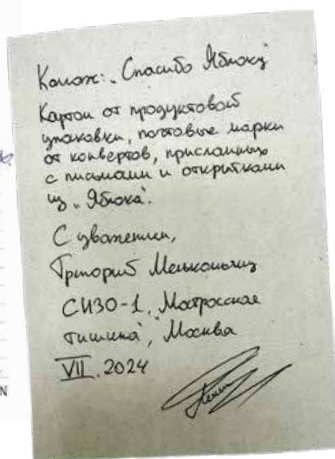 Колаж: „Спасибо Яблоку“
Картон от продуктовой
упаковки, почтовые марки
от конвертов, присланных
с письмами и открытками
из „Яблока“.
С уважением,
Григорий Мельконьянц
СИЗО-1, „Матросская
тишина“, Москва
VII.2024
N